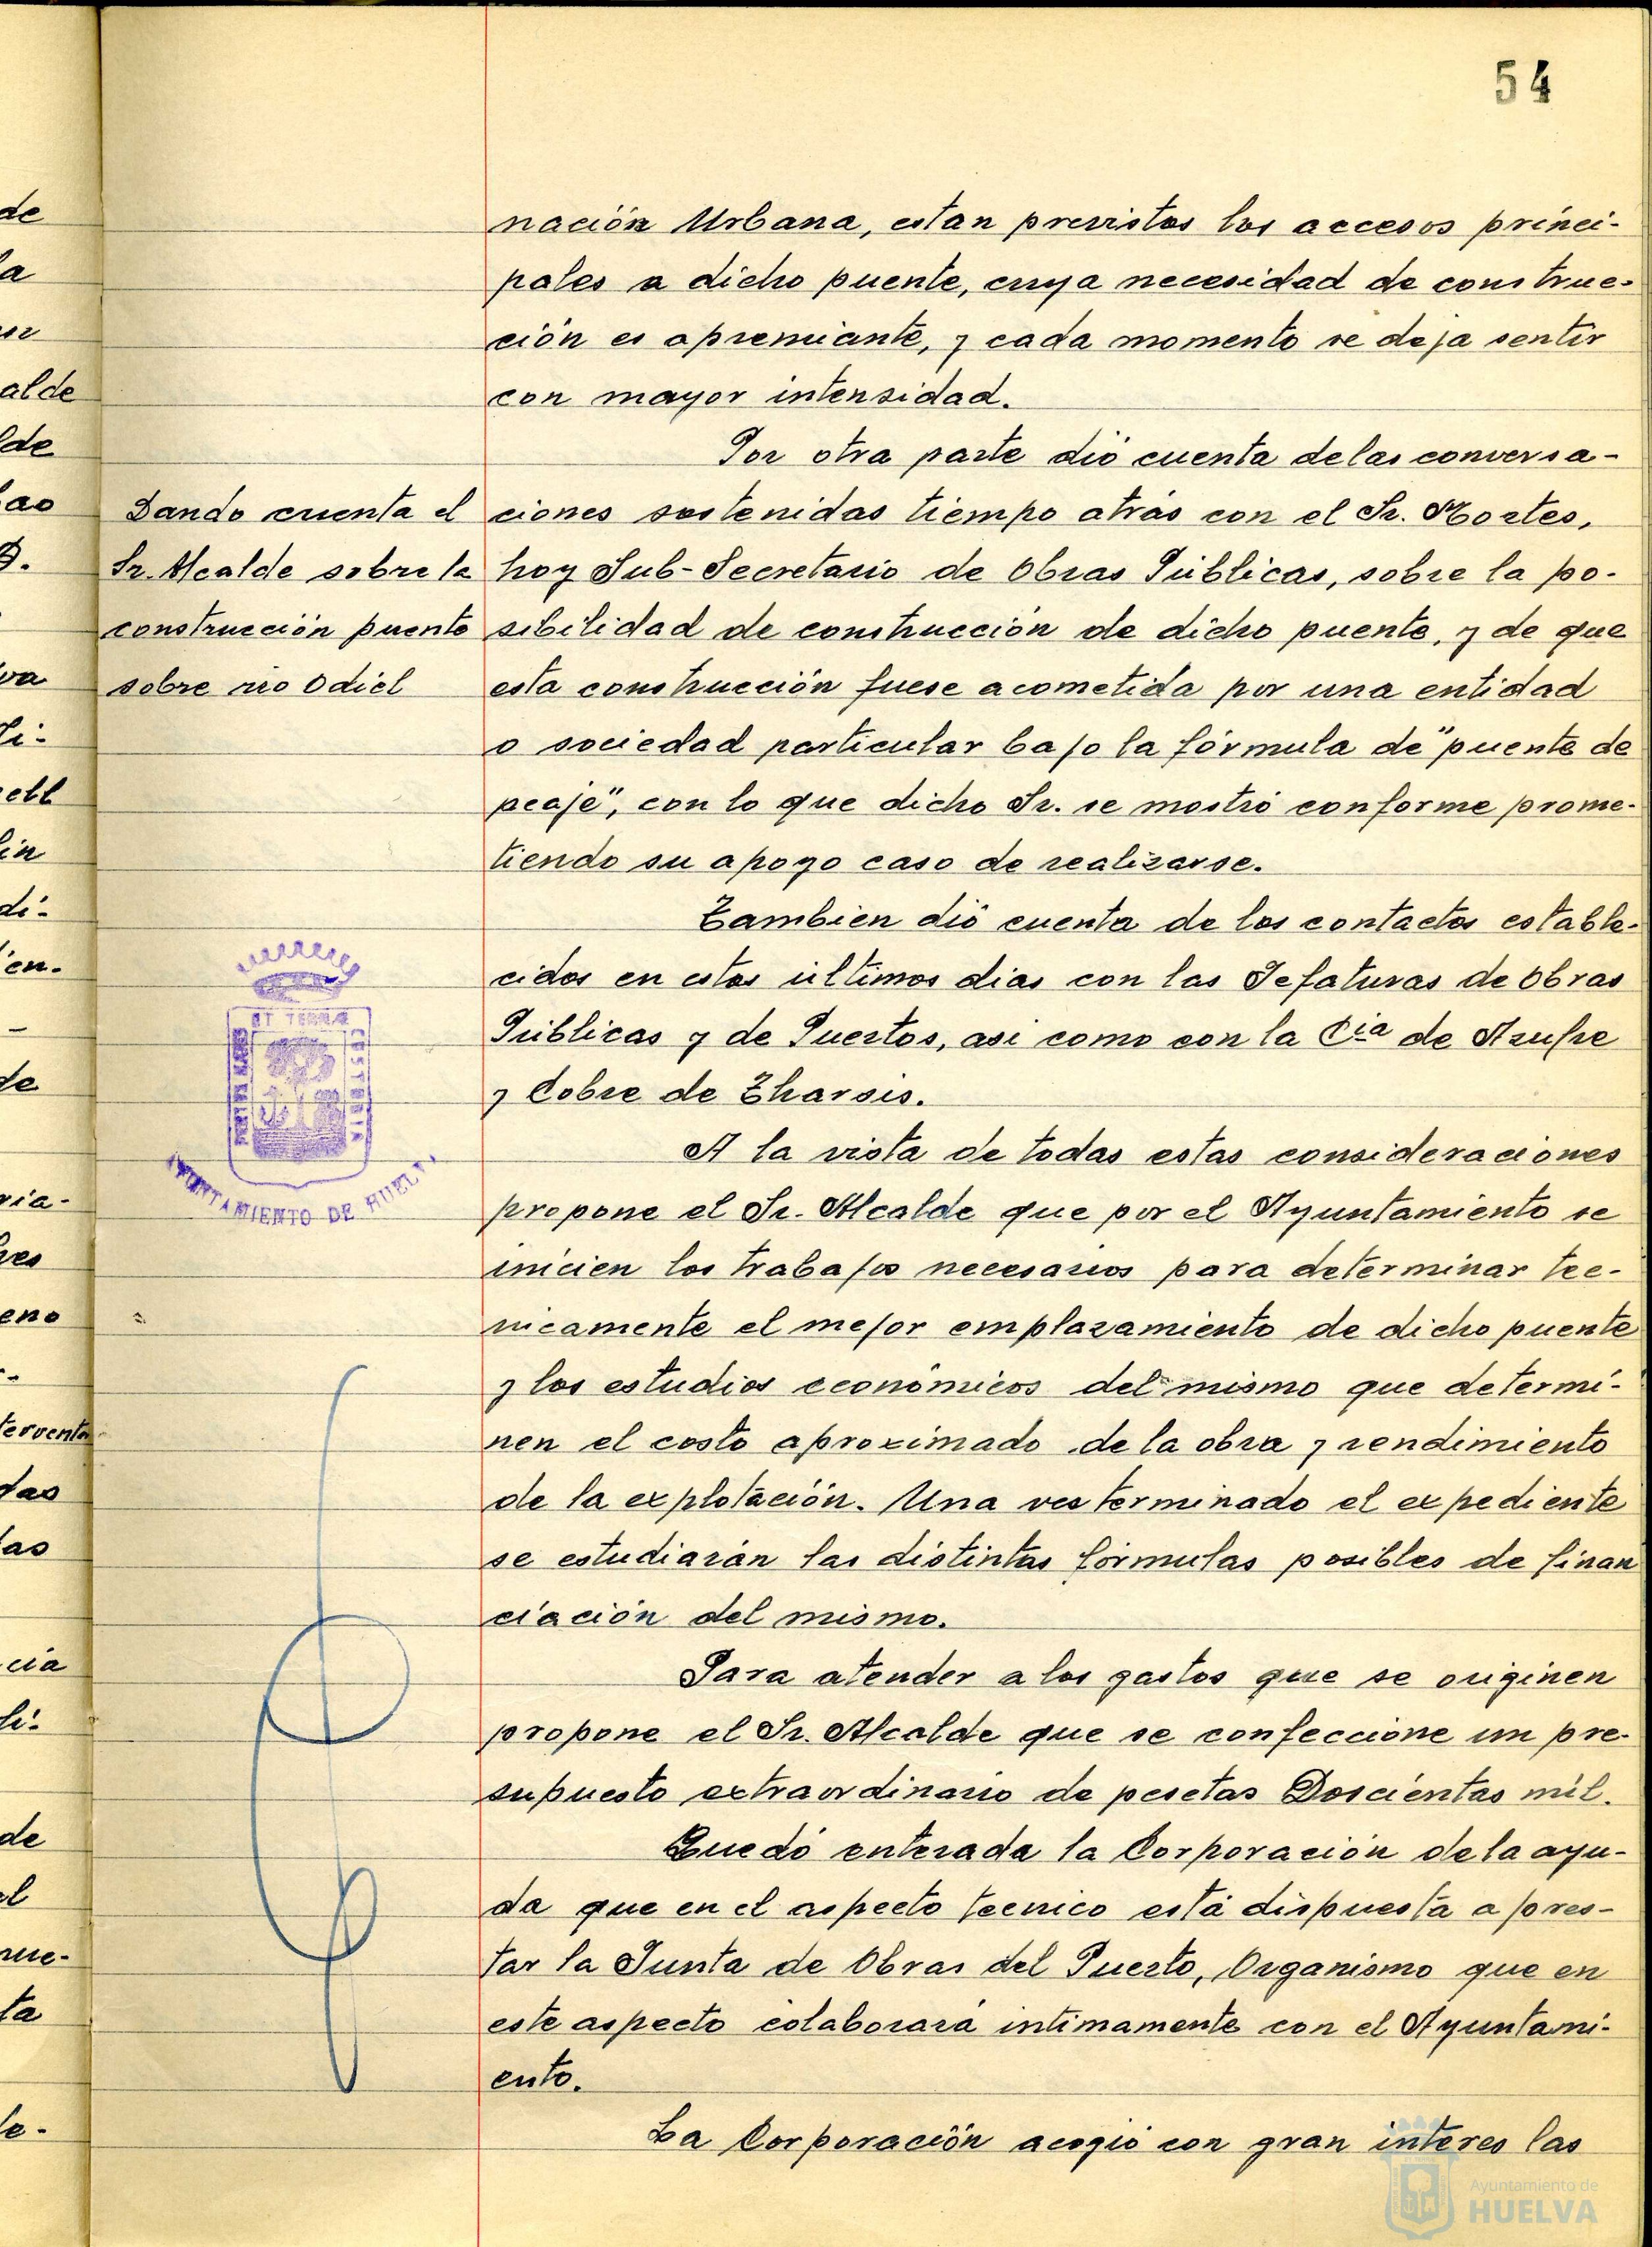 54
nación Urbana, estan previstos los accesos princi-
pales a dicho puente, cuya necesidad de construc-
ción es apremiante, y cada momento se deja sentir
con mayor intensidad.
Por otra parte dió cuenta de las conversa-
ciones sostenidas tiempo atrás con el Sr. Mortes,
hoy Sub-Secretario de Obras Públicas, sobre la po-
sibilidad de construcción de dicho puente, y de que
esta construcción fuese acometida por una entidad
o sociedad particular bajo la fórmula de "puente de
peaje", con lo que dicho Sr. se mostró conforme prome-
tiendo su apoyo caso de realizarse.
Tambien dió cuenta de los contactos estable-
cidos en estos últimos dias con las Jefaturas de Obras
Públicas y de Puertos, asi como con la Cia de Azufre
y Cobre de Tharsis.
A la vista de todas estas consideraciones
propone el Sr. Alcalde que por el Ayuntamiento se
inicien los trabajos necesarios para determinar tec-
nicamente el mejor emplazamiento de dicho puente
y los estudios económicos del mismo que determi-
nen el costo aproximado de la obra y rendimiento
de la explotación. Una vez terminado el expediente
se estudiarán las distintas fórmulas posibles de finan
ciación del mismo.
Para atender a los gastos que se originen
propone el Sr. Alcalde que se confeccione un pre-
supuesto extraordinario de pesetas Doscientas mil.
Quedó enterada la Corporación de la ayu-
da que en el aspecto tecnico está dispuesta a pres-
tar la Junta de Obras del Puerto, Organismo que en
este aspecto colaborará intimamente con el Ayuntami-
ento.
La Corporación acogió con gran interes las
Dando cuenta el
Sr. Alcalde sobre la
construcción puente
sobre rio Odiel
ET TERRAE
PORTUS MARIS
CUSTODIA
AYUNTAMIENTO DE HUELVA
de
la
alde
lde
va
de
eno
das
las
cia
de
el
ta
Ayuntamiento de
HUELVA